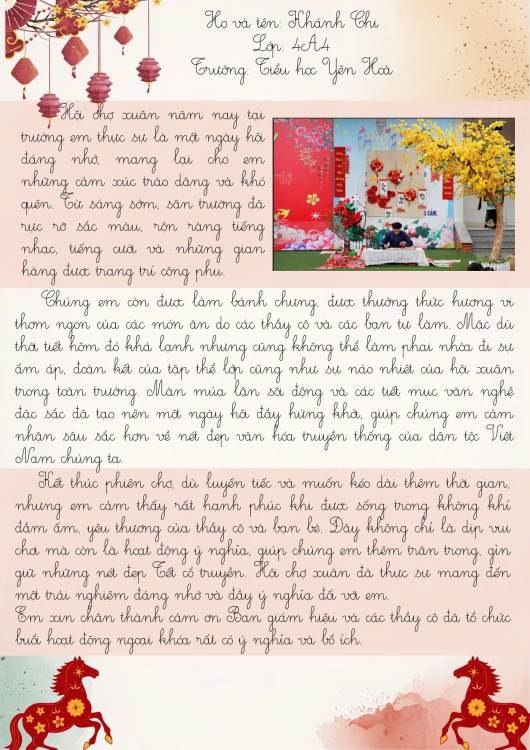 Họ và tên: Khánh Chi
Lớp: 4A4
Trường: Tiểu học Yên Hoà
Hội chợ xuân năm nay tại
trường em thực sự là một ngày hội
đáng nhớ, mang lại cho em
những cảm xúc trào dâng và khó
quên. Từ sáng sớm, sân trường đã
rực rỡ sắc màu, rộn ràng tiếng
nhạc, tiếng cười và những gian
hàng được trang trí công phu.
Chúng em còn được làm bánh chưng, được thưởng thức hương vị
thơm ngon của các món ăn do các thầy cô và các bạn tự làm. Mặc dù
thời tiết hôm đó khá lạnh nhưng cũng không thể làm phai nhòa đi sự
ấm áp, đoàn kết của tập thể lớp cũng như sự náo nhiệt của hội xuân
trong toàn trường. Màn múa lân sôi động và các tiết mục văn nghệ
đặc sắc đã tạo nên một ngày hội đầy hứng khởi, giúp chúng em cảm
nhận sâu sắc hơn về nét đẹp văn hóa truyền thống của dân tộc Việt
Nam chúng ta.
Kết thúc phiên chợ, dù luyến tiếc và muốn kéo dài thêm thời gian,
nhưng em cảm thấy rất hạnh phúc khi được sống trong không khí
đầm ấm, yêu thương của thầy cô và bạn bè. Đây không chỉ là dịp vui
chơi mà còn là hoạt động ý nghĩa, giúp chúng em thêm trân trọng, gìn
giữ những nét đẹp Tết cổ truyền. Hội chợ xuân đã thực sự mang đến
một trải nghiệm đáng nhớ và đầy ý nghĩa đối với em.
Em xin chân thành cảm ơn Ban giám hiệu và các thầy cô đã tổ chức
buổi hoạt động ngoại khóa rất có ý nghĩa và bổ ích.